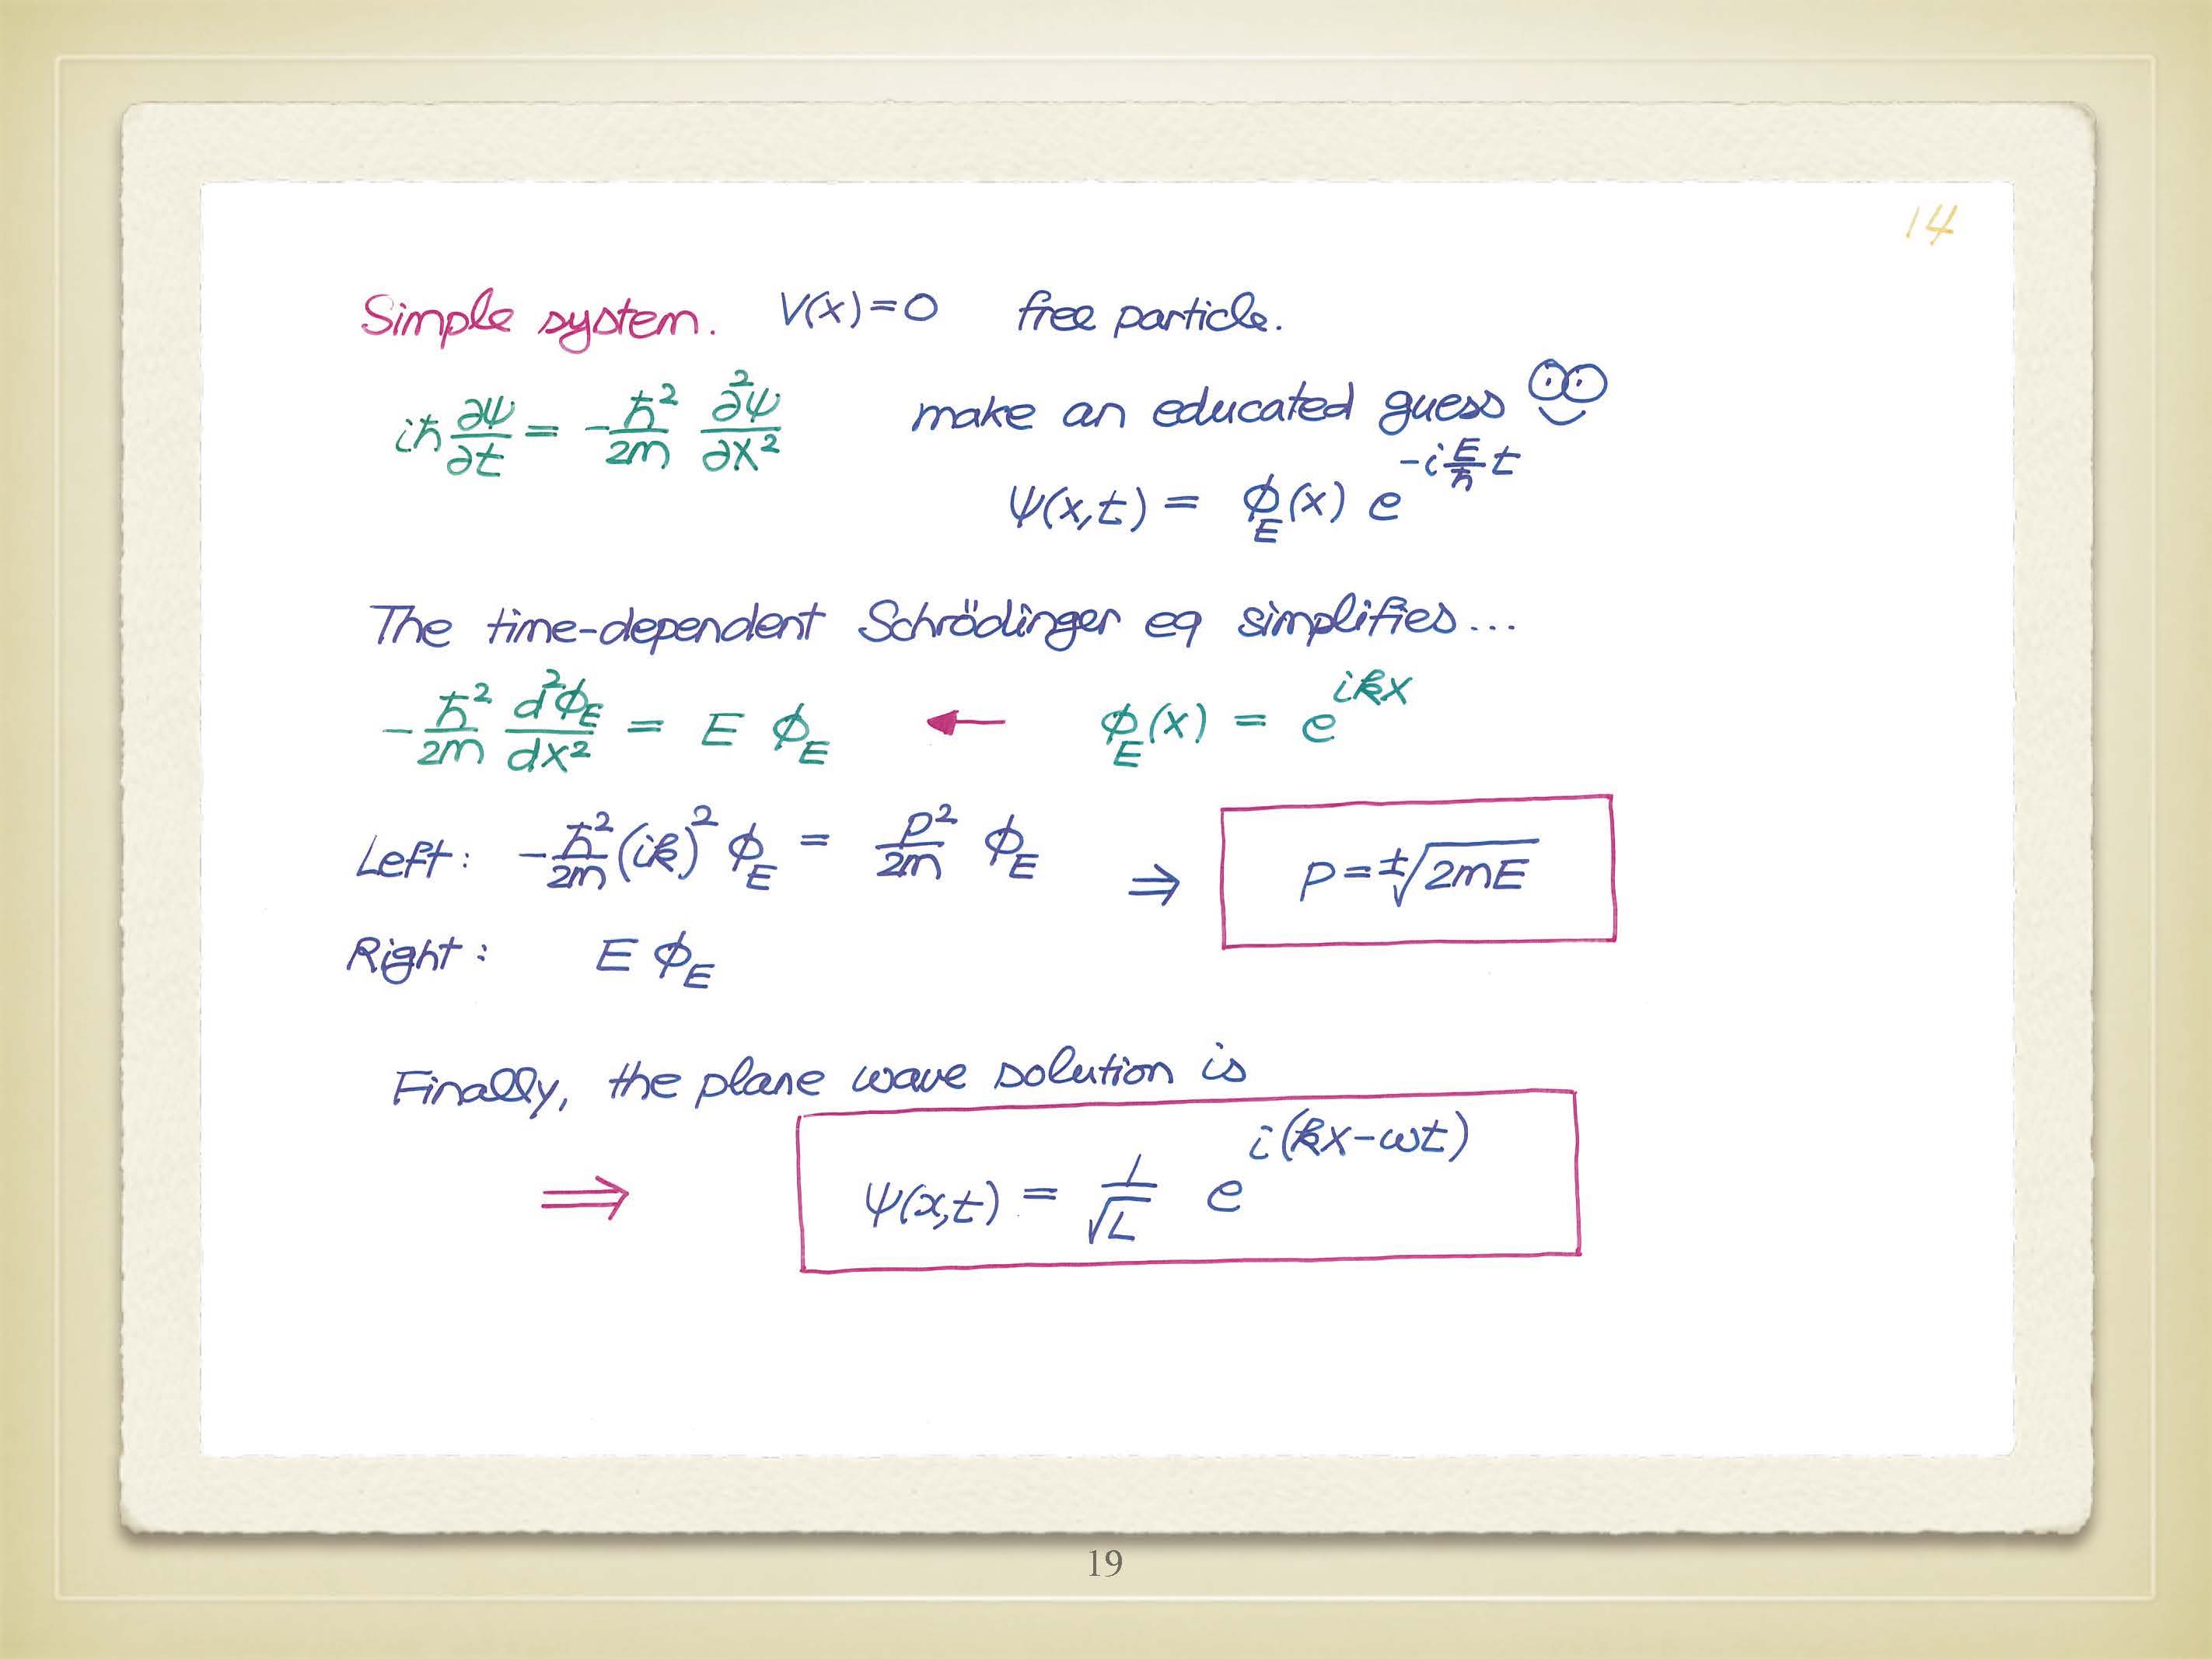 14
Simple system. V(x)=0 free particle.
iℏ ∂ψ/∂t = -ℏ²/2m ∂²ψ/∂x² make an educated guess
ψ(x,t) = ϕ_E(x) e^(-i E/ℏ t)
The time-dependent Schrödinger eq simplifies...
-ℏ²/2m d²ϕ_E/dx² = E ϕ_E ← ϕ_E(x) = e^(ikx)
Left: -ℏ²/2m (ik)² ϕ_E = p²/2m ϕ_E ⇒ p=±√2mE
Right: E ϕ_E
Finally, the plane wave solution is
⇒ ψ(x,t) = 1/√L e^(i(kx-ωt))
19